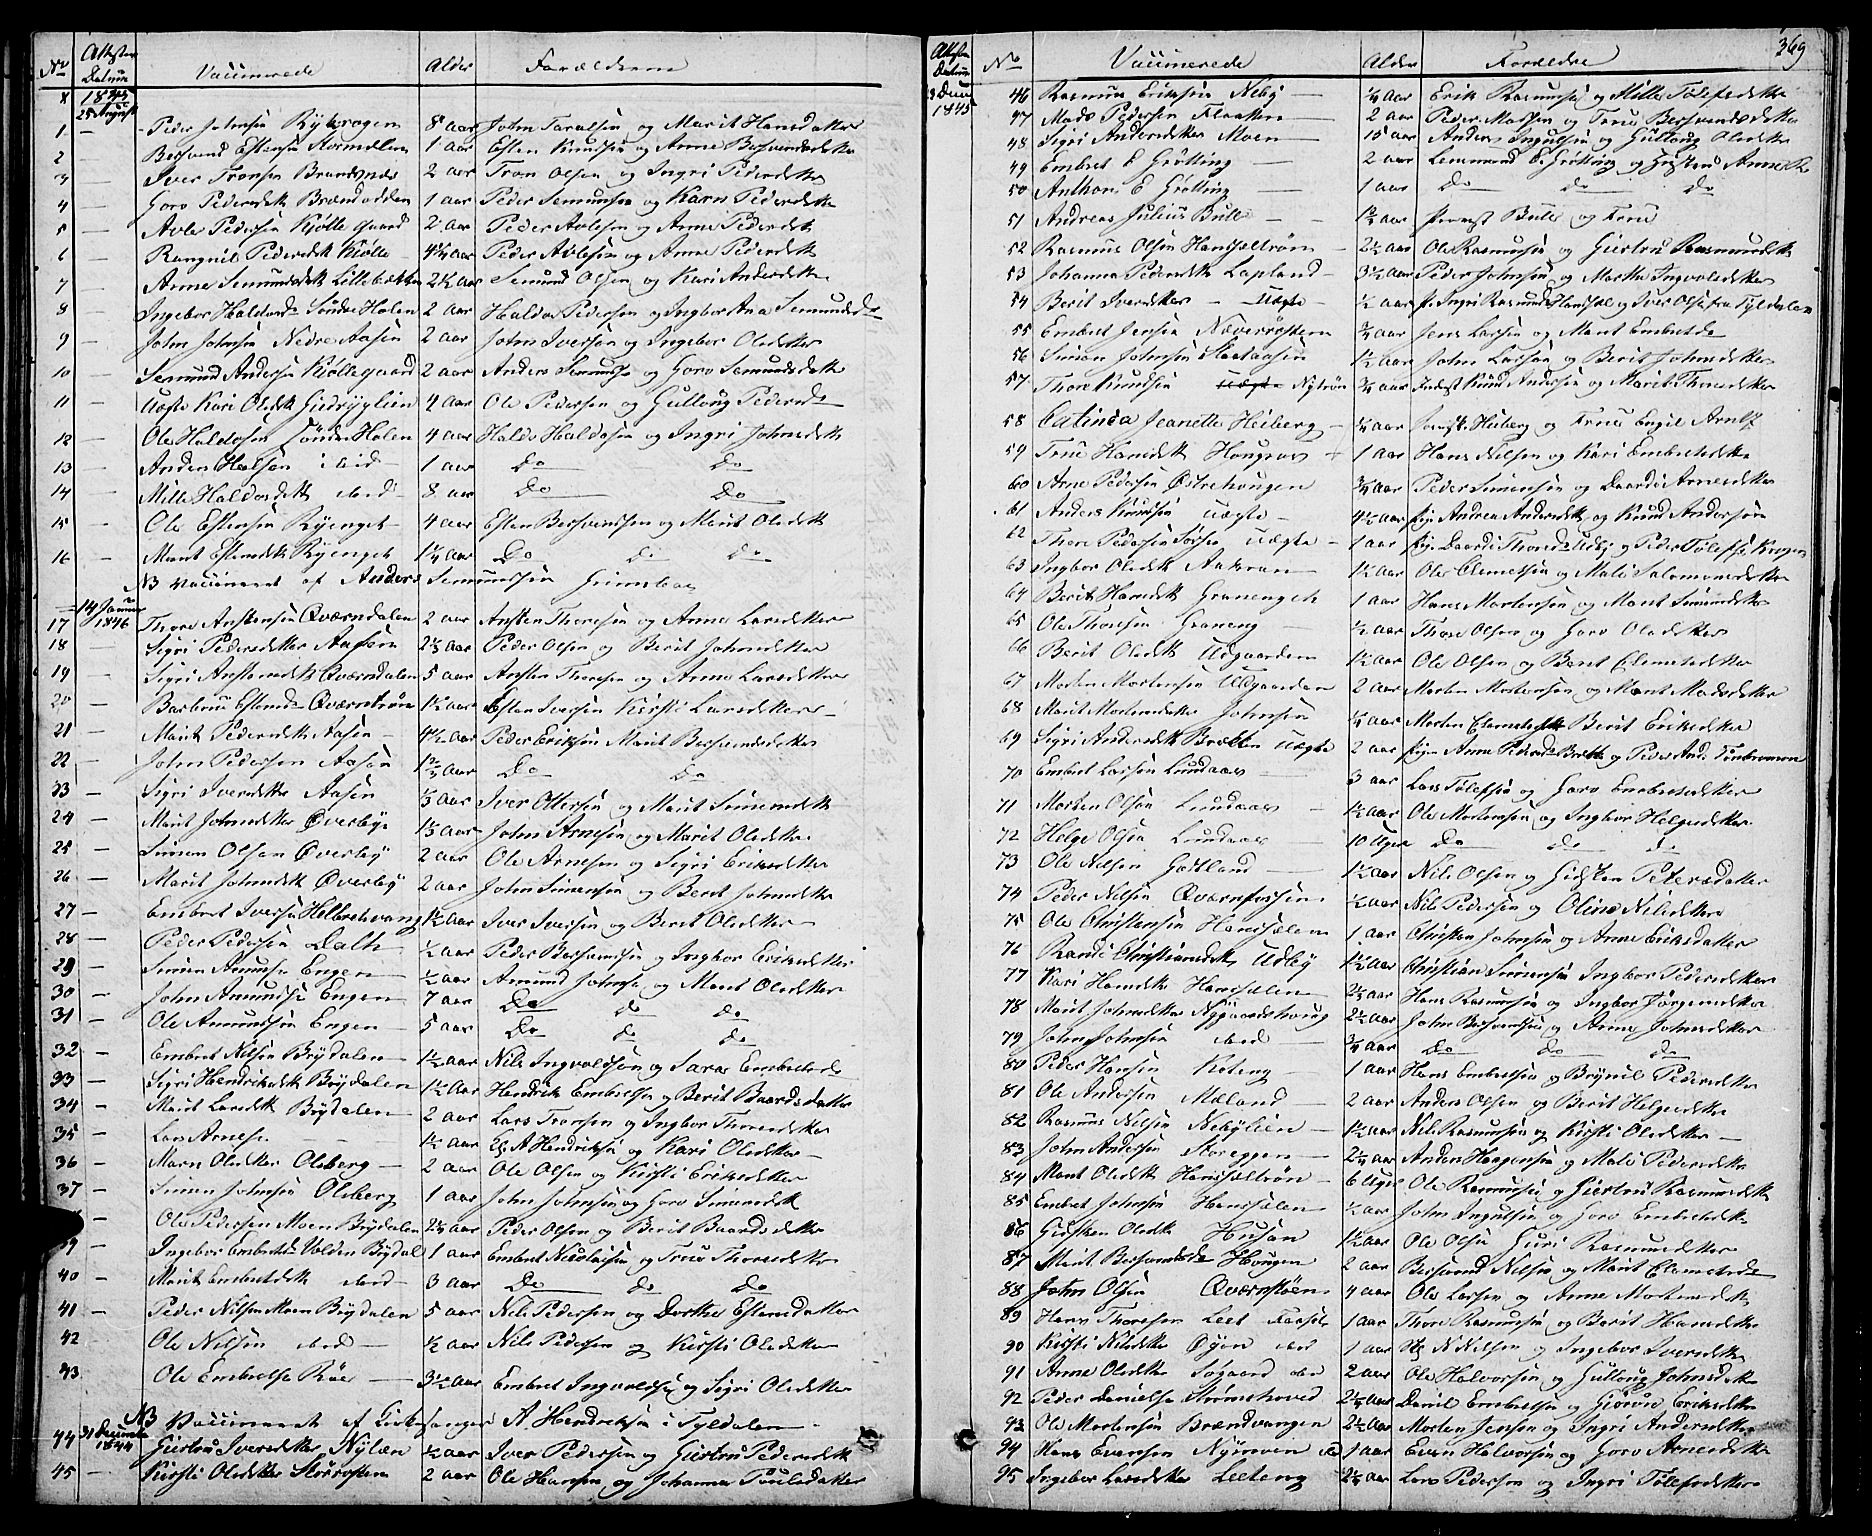 No Attestens Datum Vaccinerede Alder Forældrene
1845
25 August
1 — Peder Johnsen 8 aar John Taralsen og Marit Hansdatter
2 — Bersvend Estensen 1 aar Esten Knudsen og Anne Bersvendsdatter
3 — Iver Tronsen Brandsnæs 2 aar Tron Olsen og Ingri Pedersdtr
4 — Goro Pedersdtr Brandodden 1 aar Peder Semunsen og Karn Pedersdtr
5 — Avle Pedersen Kjøllegaard 2 aar Peder Avlesen og Anne Pedersdt
6 — Rangnil Pedersdtr Kiølle 4¼ aar Peder Avlesen og Anne Pedersdt
7 — Anne Semundsdtk Lillebekken 2½ aar Semund Olsen og Kari Andersdtr
8 — Ingebor Haldosd Søndre Holen 2 aar Haldo Pedersen og Ingbor Ana Semundsd
9 — John Johnsen Nedre Aasen 2 aar John Iversen og Ingebor Olsdtker
10 — Semund Andersen Kjøllegaard 2 aar Anders Semundsen og Goro Semundsdatt
11 — Uægte Kari Olsdtk 4 aar Ole Pedersen og Gullaug Pedersd
12 — Ole Haldosen Søndre Holen 4 aar Haldo Haldosen og Ingri Johnsdtk
13 — 1 aar Do Do
14 — Mille Haldosdtk ibid 8 aar Do Do
15 — Ole Estensen Ryenget 4 aar Esten Bersvendsen og Marit Olsdtk
16 — Marit Estensdtk Ryenget 1¼ aar Do Do Do
NB vaccineret af Anders Semundsen Grimsboe
14 Januar 1846
17 Thore Anstensen Qværndalen 2 aar Ansten Thoresen og Anne Larsdtker
18 — Sigri Pedersdtker Aasen 2⅔ aar Peder Olsen og Berit Johnsdtker
19 — Sigri Anstensdtk Qværndalen 5 aar Ansten Thoresen og Anne Larsdtker
20 — Barbrue Estensd Qværnstrøm 1½ aar Esten Iversen Kirsti Larsdtker
21 — Marit Pedersdtk Aasen 4½ aar Peder Eriksen Marit Bersvendsdtker
22 — John Pedersen Aasen 1⅔ aar Do Do
23 — Sigri Iversdtker Aasen ⅓ aar Iver Ottersen og Marit Simensdtk
24 — Marit Johnsdtker Øverbye 1⅓ aar John Arnesen og Marit Olsdtker
25 — Simen Olsen Øverby 2 aar Ole Arnesen og Sigri Eriksdtker
26 — Marit Johnsdtk Øverby 2 aar John Simensen og Berit Johnsdtker
27 — Embret Iversen 1½ aar Iver Iversen og Berit Olsdtker
28 — Peder Pedersen Dalh ½ aar Peder Bersvendsen og Ingbor Eriksdtker
29 — Simen Amundsen Engen ½ aar Amund Johnsen og Marit Olsdtker
30 — John Amundsen Engen 7 aar Do Do Do
31 — Ole Amundsen Engen 5 aar Do Do Do
32 — Embret Nilsen Brydalen 1½ aar Nils Ingvoldsen og Sara Embretsd
33 — Sigri Hendriksdtk Brydalen 1½ aar Hendrik Embretsen og Berit Baardsdatter
34 — Marit Larsdtk Brydalen 2 aar Lars Tronsen og Ingbor Thoresdtker
35 — Lars Arnese 1½ aar A Hendriksen og Kari Olsdtker
36 — Marn Olsdtker Olsberg 2 aar Ole Olsen og Kirsti Eriksdtker
37 — Simen Johnsen Olsberg 1 aar John Johnsen og Goro Simensdtk
— Ole Pedersen Moen Brydalen 2¼ aar Peder Olsen og Berit Baardsdtker
9 — Ingebor Embretsd Volden Brydal 1 aar Embret Nicolaisen og True Thoresdtker
40 — Marit Embretsdtk ibid 3 aar Do Do Do
41 — Peder Nilsen Moen Brydalen 5 aar Nils Pedersen og Dorthe Estensdatter
42 — Ole Nilsen ibid ½ aar Nils Pedersen og Kirsti Olsdtker
43 Ole Embretsen Røe 3½ aar Embret Ingvoldsen og Sigri Olsdtker
NB Vaccineret af Kirkesanger A Hendriksen i Tyldalen
31 December 1844
44 Giertru Iversdtker Nylæn ½ aar Iver Pedersen og Giertru Pedersdtk
45 — Kirsti Olsdtker 2 aar Ole Hansen og Johanna Poulsdatter
369
Attestens Datum No Vaccinerede Alder Forældre
1845
46 Rasmus Eriksen Neby ¼ aar Erik Rasmussen og Mille Tolefsdtker
47 Mads Pedersen Floaken 2 aar Peder Madsen og True Bersvendsdtker
48 Sigri Andersdtker Moen 15 aar Anders Ingulsen og Gullaug Olsdtk
49 Embret E Grøtting 2 aar E Grøtting og Hustru Anne
50 Anthon E Grøtting 1 aar Do Do Do
51 Andreas Julius Bull 1¾ aar Bull og Frue
52 Rasmus Olsen Hansæltrøn 2½ aar Ole Rasmusen og Giertru Rasmusdtk
53 Johanna Pedersdtk Lapland 3½ aar Peder Johnsen og Martha Ingvoldsdtker
54 Berit Iversdtker Uægte ½ aar Ingri Rasmusd Hansæl og Iver Olsen fra Tyldalen
55 Embret Jensen Næverøsten ¾ aar Jens Larsen og Marit Embretd
56 Simon Johnsen 1½ aar John Larsen og Berit Johnsdtker
57 Thore Knudsen Uægte Nytrøn ¾ aar Knud Andersen og Marit Thoresdtker
58 Catinca Jeanette Heiberg ¾ aar Heiberg og Frue Engel Arntz
59 True Hansdtk 1 aar Hans Nilsen og Kari Embretsdtker
60 Arne Pedersen Østrehaugen ¾ aar Peder Simensen og Daardi Arnesdtker
61 Anders Knudsen Uægte 4½ aar Pige Andrea Andersdtk og Knud Andersen
62 Thore Pedersen Uægte 1 aar Pige Daardi Thoresd Udby og Peder Tolefsen
63 Ingbor Olsdtk Aakran 1½ aar Ole Clemetsen og Mali Salomonsdtker
64 Berit Hansdtk Granenget 1 aar Hans Mortensen og Marit Simensdtker
65 Ole Thoresen Graneng ½ aar Thore Olsen og Goro Olsdtker
66 Berit Olsdtk Udgaarden 1½ aar Ole Olsen og Berit Clemetsdtker
67 Morten Mortensen Udgaarden 2 aar Morten Mortensen og Marit Madsdtker
68 Marit Mortensdtker Johnsen ¼ aar Morten Clemetsen Berit Eriksdtker
69 Sigri Andersdtk Bratten Uægte 2 aar Pige Anne Pedersd og Peder And
70 Embret Larsen Lundaas 3 aar Lars Tolefsen og Goro Embretsdtker
71 Morten Olsen Lundaas 1½ aar Ole Mortensen og Ingbor Helgesdtker
72 Helge Olsen Lundaas 10 Uger Do Do Do
73 Ole Nilsen Gotland 1½ aar Nils Olsen og Gidsken Petersdatter
74 Peder Nilsen Qværnfossen ½ aar Nils Pedersen og Oline Nilsdtker
75 Ole Christensen Hansælen 1 aar Christen Johnsen og Anne Eriksdatter
76 Randi Christiansdtk Udby 1½ aar Christian Simensen Ingbor Pedersdtker
77 Kari Hansdtk Hansælen 2⅔ aar Hans Rasmusen og Ingbor Jørgensdtker
78 Marit Johnsdtker Nygaardshaug 2½ aar John Bersvendsen og Anne Johnsdtker
79 John Johnsen ibid ¾ aar Do Do Do
80 Peder Hansen Koteng 1 aar Hans Embretsen og Brynil Pedersdtker
81 Ole Andersen Mæland 2 aar Anders Olsen og Berit Helgesdtker
82 Rasmus Nilsen Nebylien 1½ aar Nils Rasmusen og Kirsti Olsdtker
83 John Andersen Storeggen 2¼ aar Anders Haagensen og Mali Pedersdtker
84 Marit Olsdtk Hansæltrøn 6 Uger Ole Rasmusen og Giertru Rasmusdtk
85 Embret Johnsen Hansælen ½ aar John Ingulsen og Goro Embretsdtk
86 Gidsken Olsdtk Husan 1½ aar Ole Olsen Guri Rasmusdtker
87 Marit Bersvendsd Haugen 2 aar Bersvend Nilsen og Marit Clemetsd
88 John Olsen Qværnstøen 4 aar Ole Larsen og Anne Mortensdtk
89 Hans Thoresen Leet 1 aar Thore Rasmusen og Berit Hansdtker
90 Kirsti Nilsdtker Øyen ibid 1 aar N Nilsen og Ingebor Iversdtk
91 Anne Olsdtker Søgaard ibid 2 aar Ole Halvorsen og Gullaug Johnsdtk
92 Peder Danielsen Strømshoved 2¼ aar Daniel Embretsen og Eriksdtk
93 Ole Mortensen Brændvangen 2½ aar Morten Jensen og Ingri Andersdtk
94 Hans Evensen Nymoen 1 aar Even Halvorsen og Goro Arnesdtk
95 Ingebor Larsdtker Leeteng 2¼ aar Lars Pedersen og Ingri Tolefsdtker